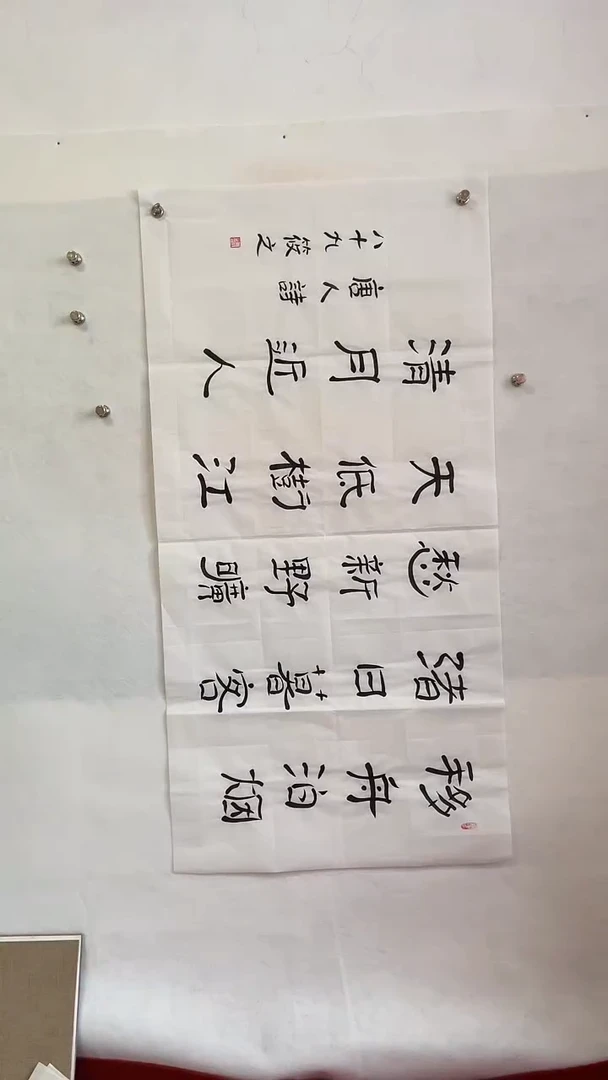 移舟泊烟
渚日暮客
愁新野曠
天低樹江
清月近人
唐人詩
八十九筱之